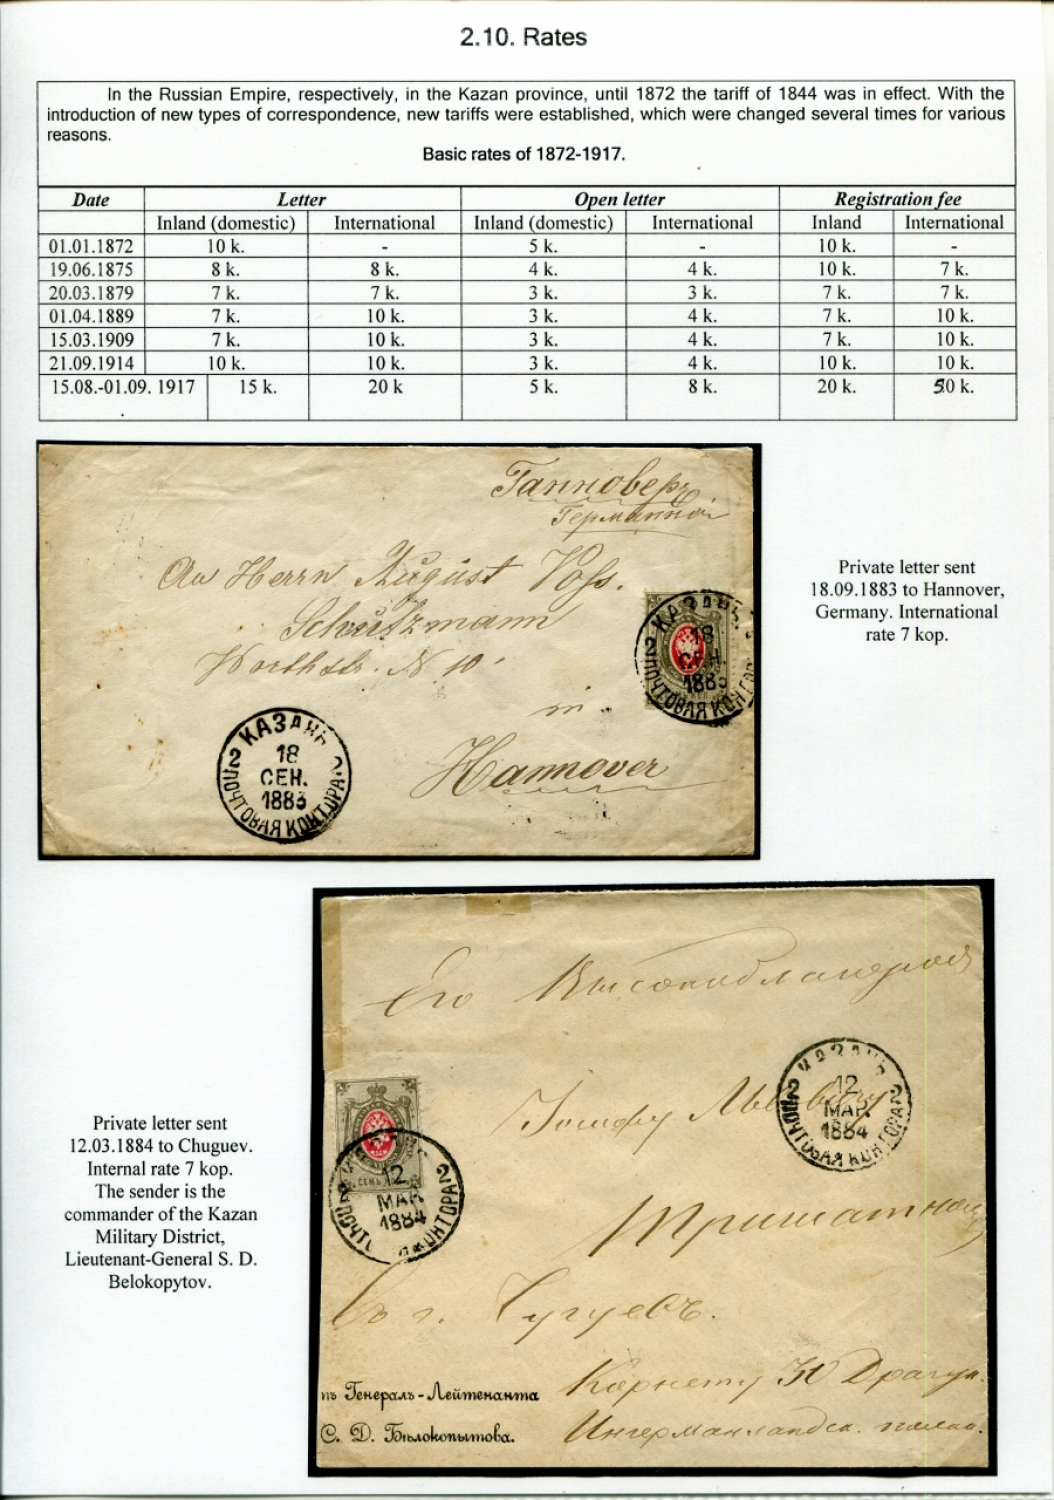 2.10. Rates
In the Russian Empire, respectively, in the Kazan province, until 1872 the tariff of 1844 was in effect. With the
introduction of new types of correspondence, new tariffs were established, which were changed several times for various
reasons.
Basic rates of 1872-1917.
Date Letter Open letter Registration fee
Inland (domestic) International Inland (domestic) International Inland International
01.01.1872 10 k. - 5 k. - 10 k. -
19.06.1875 8 k. 8 k. 4 k. 4 k. 10 k. 7 k.
20.03.1879 7 k. 7 k. 3 k. 3 k. 7 k. 7 k.
01.04.1889 7 k. 10 k. 3 k. 4 k. 7 k. 10 k.
15.03.1909 7 k. 10 k. 3 k. 4 k. 7 k. 10 k.
21.09.1914 10 k. 10 k. 3 k. 4 k. 10 k. 10 k.
15.08.-01.09. 1917 15 k. 20 k 5 k. 8 k. 20 k. 50 k.
Ганноверъ
Германiя
An Herrn August Voss.
Schutzmann
Worthstr. N. 10.
in
Hannover
КАЗАНЬ
18
СЕН.
1883
2 ПОЧТОВАЯ КОНТОРА 2
КАЗАНЬ
18
СЕН.
1883
2 ПОЧТОВАЯ КОНТОРА
Private letter sent
18.09.1883 to Hannover,
Germany. International
rate 7 kop.
Его Высокоблагородiю
Iосифу Львовичу
в г. Чугуевъ.
Корнету 10 Драгун.
Ингерманландск. полка.
КАЗАНЬ
12
МАР.
1884
2 ПОЧТОВАЯ КОНТОРА 2
СЕМЬ
12
МАР
1884
ПОЧТОВ КОНТОРА 2
нъ Генералъ-Лейтенанта
С. Д. Бѣлокопытова.
Private letter sent
12.03.1884 to Chuguev.
Internal rate 7 kop.
The sender is the
commander of the Kazan
Military District,
Lieutenant-General S. D.
Belokopytov.